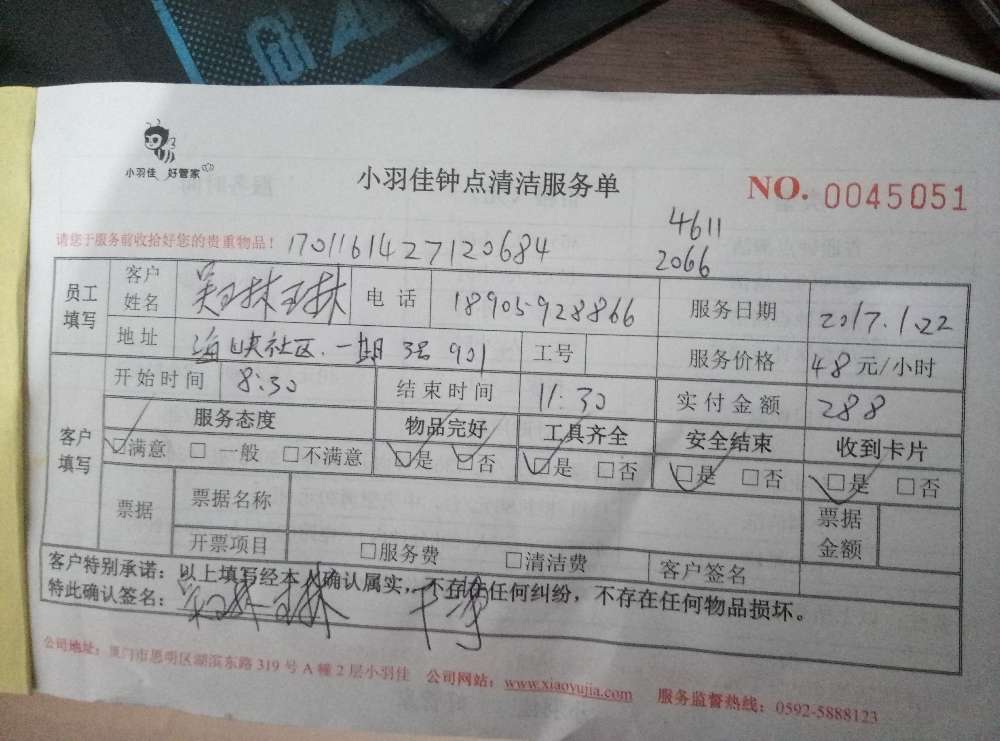 小羽佳 好管家
小羽佳钟点清洁服务单
NO. 0045051
4611
请您于服务前收拾好您的贵重物品! 1701161427120684
2066
员工填写 客户姓名 吴琳琳 电话 18905928866 服务日期 2017.1.22
地址 海峡社区.一期 3号 901 工号 服务价格 48元/小时
开始时间 8:30 结束时间 11:30 实付金额 288
客户填写 服务态度 物品完好 工具齐全 安全结束 收到卡片
☑满意 □一般 □不满意 ☑是 ☑否 ☑是 □否 ☑是 □否 ☑是 □否
票据 票据名称 票据金额
开票项目 □服务费 □清洁费 客户签名
客户特别承诺:以上填写经本人确认属实,不存在任何纠纷,不存在任何物品损坏。
特此确认签名: 吴琳琳 干净
公司地址:厦门市思明区湖滨东路319号A幢2层小羽佳 公司网站:www.xiaoyujia.com 服务监督热线:0592-5888123